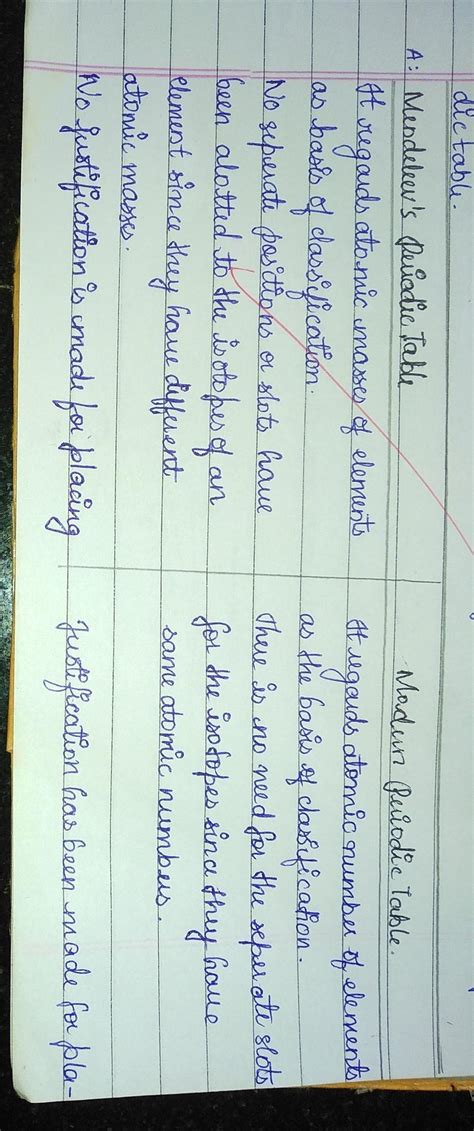 dic table.
A: Mendeleev's Periodic Table
It regards atomic masses of elements
as basis of classification.
No seperate positions or slots have
been alotted to the isotopes of an
element since they have different
atomic masses.
No justification is made for placing
Modern Periodic Table.
It regards atomic number of elements
as the basis of classification.
There is no need for the seperate slots
for the isotopes since they have
same atomic numbers.
Justification has been made for pla-